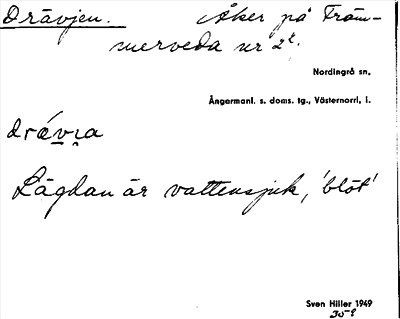 Drävjen. Åker på Främ-
merveda nr 2
Nordingrå sn.
Ångermanl. s. doms. tg., Västernorrl. l.
Lägdan är vattensjuk, 'blöt'
Sven Hiller 1949